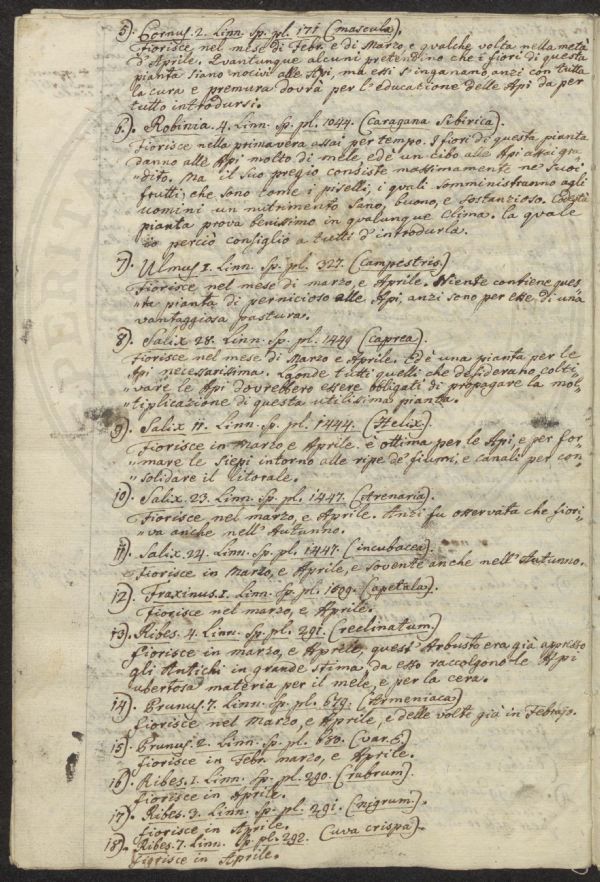 5). Cornus. 2. Linn. Sp. pl. 171 (mascula).
Fiorisce nel mese di Febr. e di Marzo, e qualche volta nella metà
d'Aprile. Quantunque alcuni pretendino che i fiori di questa
pianta siano nocivi alle Api, ma essi s'inganano anzi con tutta
la cura e premura dovrà per l'educazione delle Api da per
tutto introdursi.
6). Robinia. 4. Linn. Sp. pl. 1044. (Caragana Sibirica).
Fiorisce nella primavera assai per tempo. I fiori di questa pianta
danno alle Api molto di mele, ed è un cibo alle Api assai gra-
"dito. Ma il suo pregio consiste massimamente ne' suoi
frutti, che sono come i piselli, i quali somministranno agli
uomini un nutrimento sano, buono, e sostanzioso. Codesta
pianta prova benissimo in qualunque clima. la quale
io perciò consiglio a tutti d'introdurla.
7). Ulmus 1. Linn. Sp. pl. 327. (Campestris).
Fiorisce nel mese di marzo, e Aprile. Niente contiene ques-
"ta pianta di pernicioso alle Api, anzi sono per esse di una
vantaggiosa pastura.
8). Salix 28. Linn. Sp. pl. 1449 (caprea).
Fiorisce nel mese di Marzo e Aprile. Ed è una pianta per le
Api necessarissima. Laonde tutti quelli che desiderano colti-
"vare le Api dovrebbero essere obbligati di propagare la mol-
"tiplicazione di questa utilissima pianta.
9). Salix 11. Linn. Sp. pl. 1444. (Helix).
Fiorisce in Marzo, e Aprile. è ottima per le Api, e per for-
"mare le siepi intorno alle ripe de' fiumi, e canali per con-
"solidare il litorale.
10). Salix. 23. Linn. Sp. pl. 1447. (Arenaria).
Fiorisce nel marzo, e Aprile. Anzi fu osservata che fiori-
"va anche nell'Autunno.
11). Salix. 24. Linn. Sp. pl. 1447. (incubacea).
Fiorisce in Marzo, e Aprile, e sovente anche nell'Autunno.
12). Fraxinus. 1. Linn. Sp. pl. 1509. (apetala).
Fiorisce nel marzo, e Aprile.
13). Ribes. 4. Linn. Sp. pl. 291. (reclinatum)
Fiorisce in marzo, e Aprile, quest'Arbusto era già appresso
gli Antichi in grande stima, da esso raccolgono le Api
ubertosa materia per il mele, e per la cera.
14). Prunus. 7. Linn. Sp. pl. 679. (Armeniaca)
Fiorisce nel Marzo, e Aprile, e delle volte già in Febrajo.
15). Prunus. 2. Linn. Sp. pl. 680. (var. 6).
Fiorisce in Febr. marzo, e Aprile.
16). Ribes. 1. Linn. Sp. pl. 290. (rubrum).
Fiorisce in Aprile.
17). Ribes. 3. Linn. Sp. pl. 291. (nigrum).
Fiorisce in Aprile.
18). Ribes. 7. Linn. Sp. pl. 292. (uva crispa).
Fiorisce in Aprile.